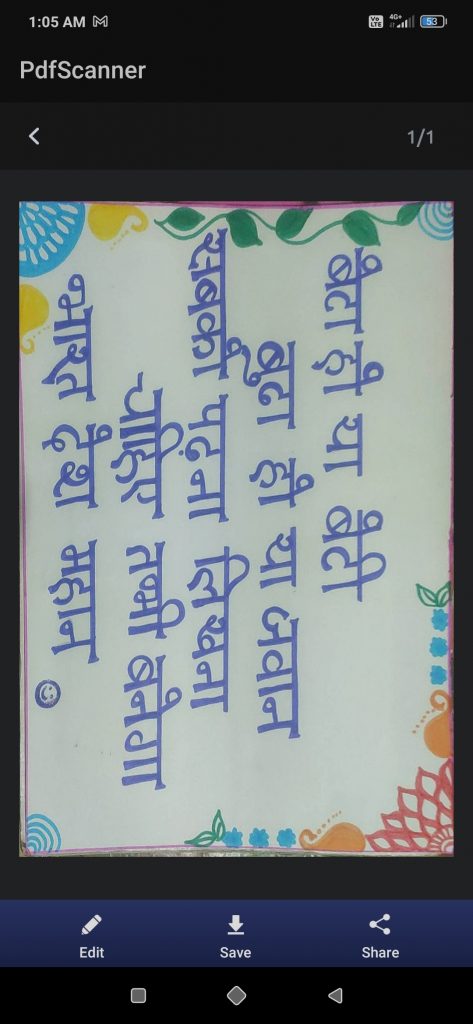 1:05 AM
Vo LTE 4G+ 53
PdfScanner
1/1
बेटा हो या बेटी
बुढा हो या जवान
सबको पढना लिखना
चाहिए तभी बनेगा
भारत देश महान
Edit Save Share